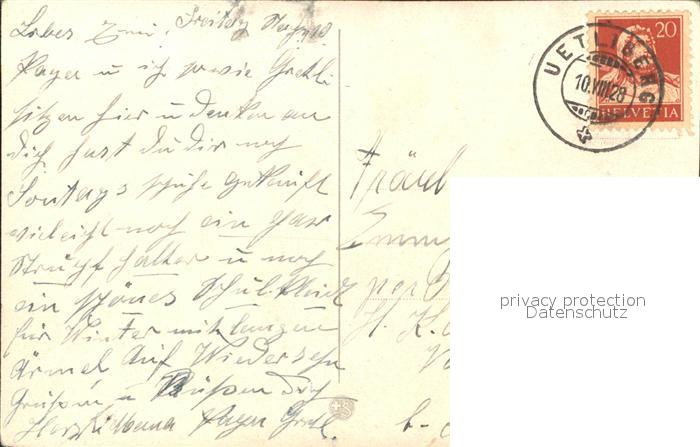 Freitag
Liebes Emmi!
u ich sowie Gretli
sitzen hier u denken an
dich hast du dir noch
Sontags schuhe gekauft
vieleicht noch ein par
Strumpf halter u noch
ein schönes Schulkleid
für Winter mit langen
Ärmel Auf Wiedersehn
Grüßen u Küßen dich
Herzl. Mama Gretl.
UETLIBERG
10.VIII.28
20
HELVETIA
Fräul
Emm
per
H. K.
privacy protection
Datenschutz